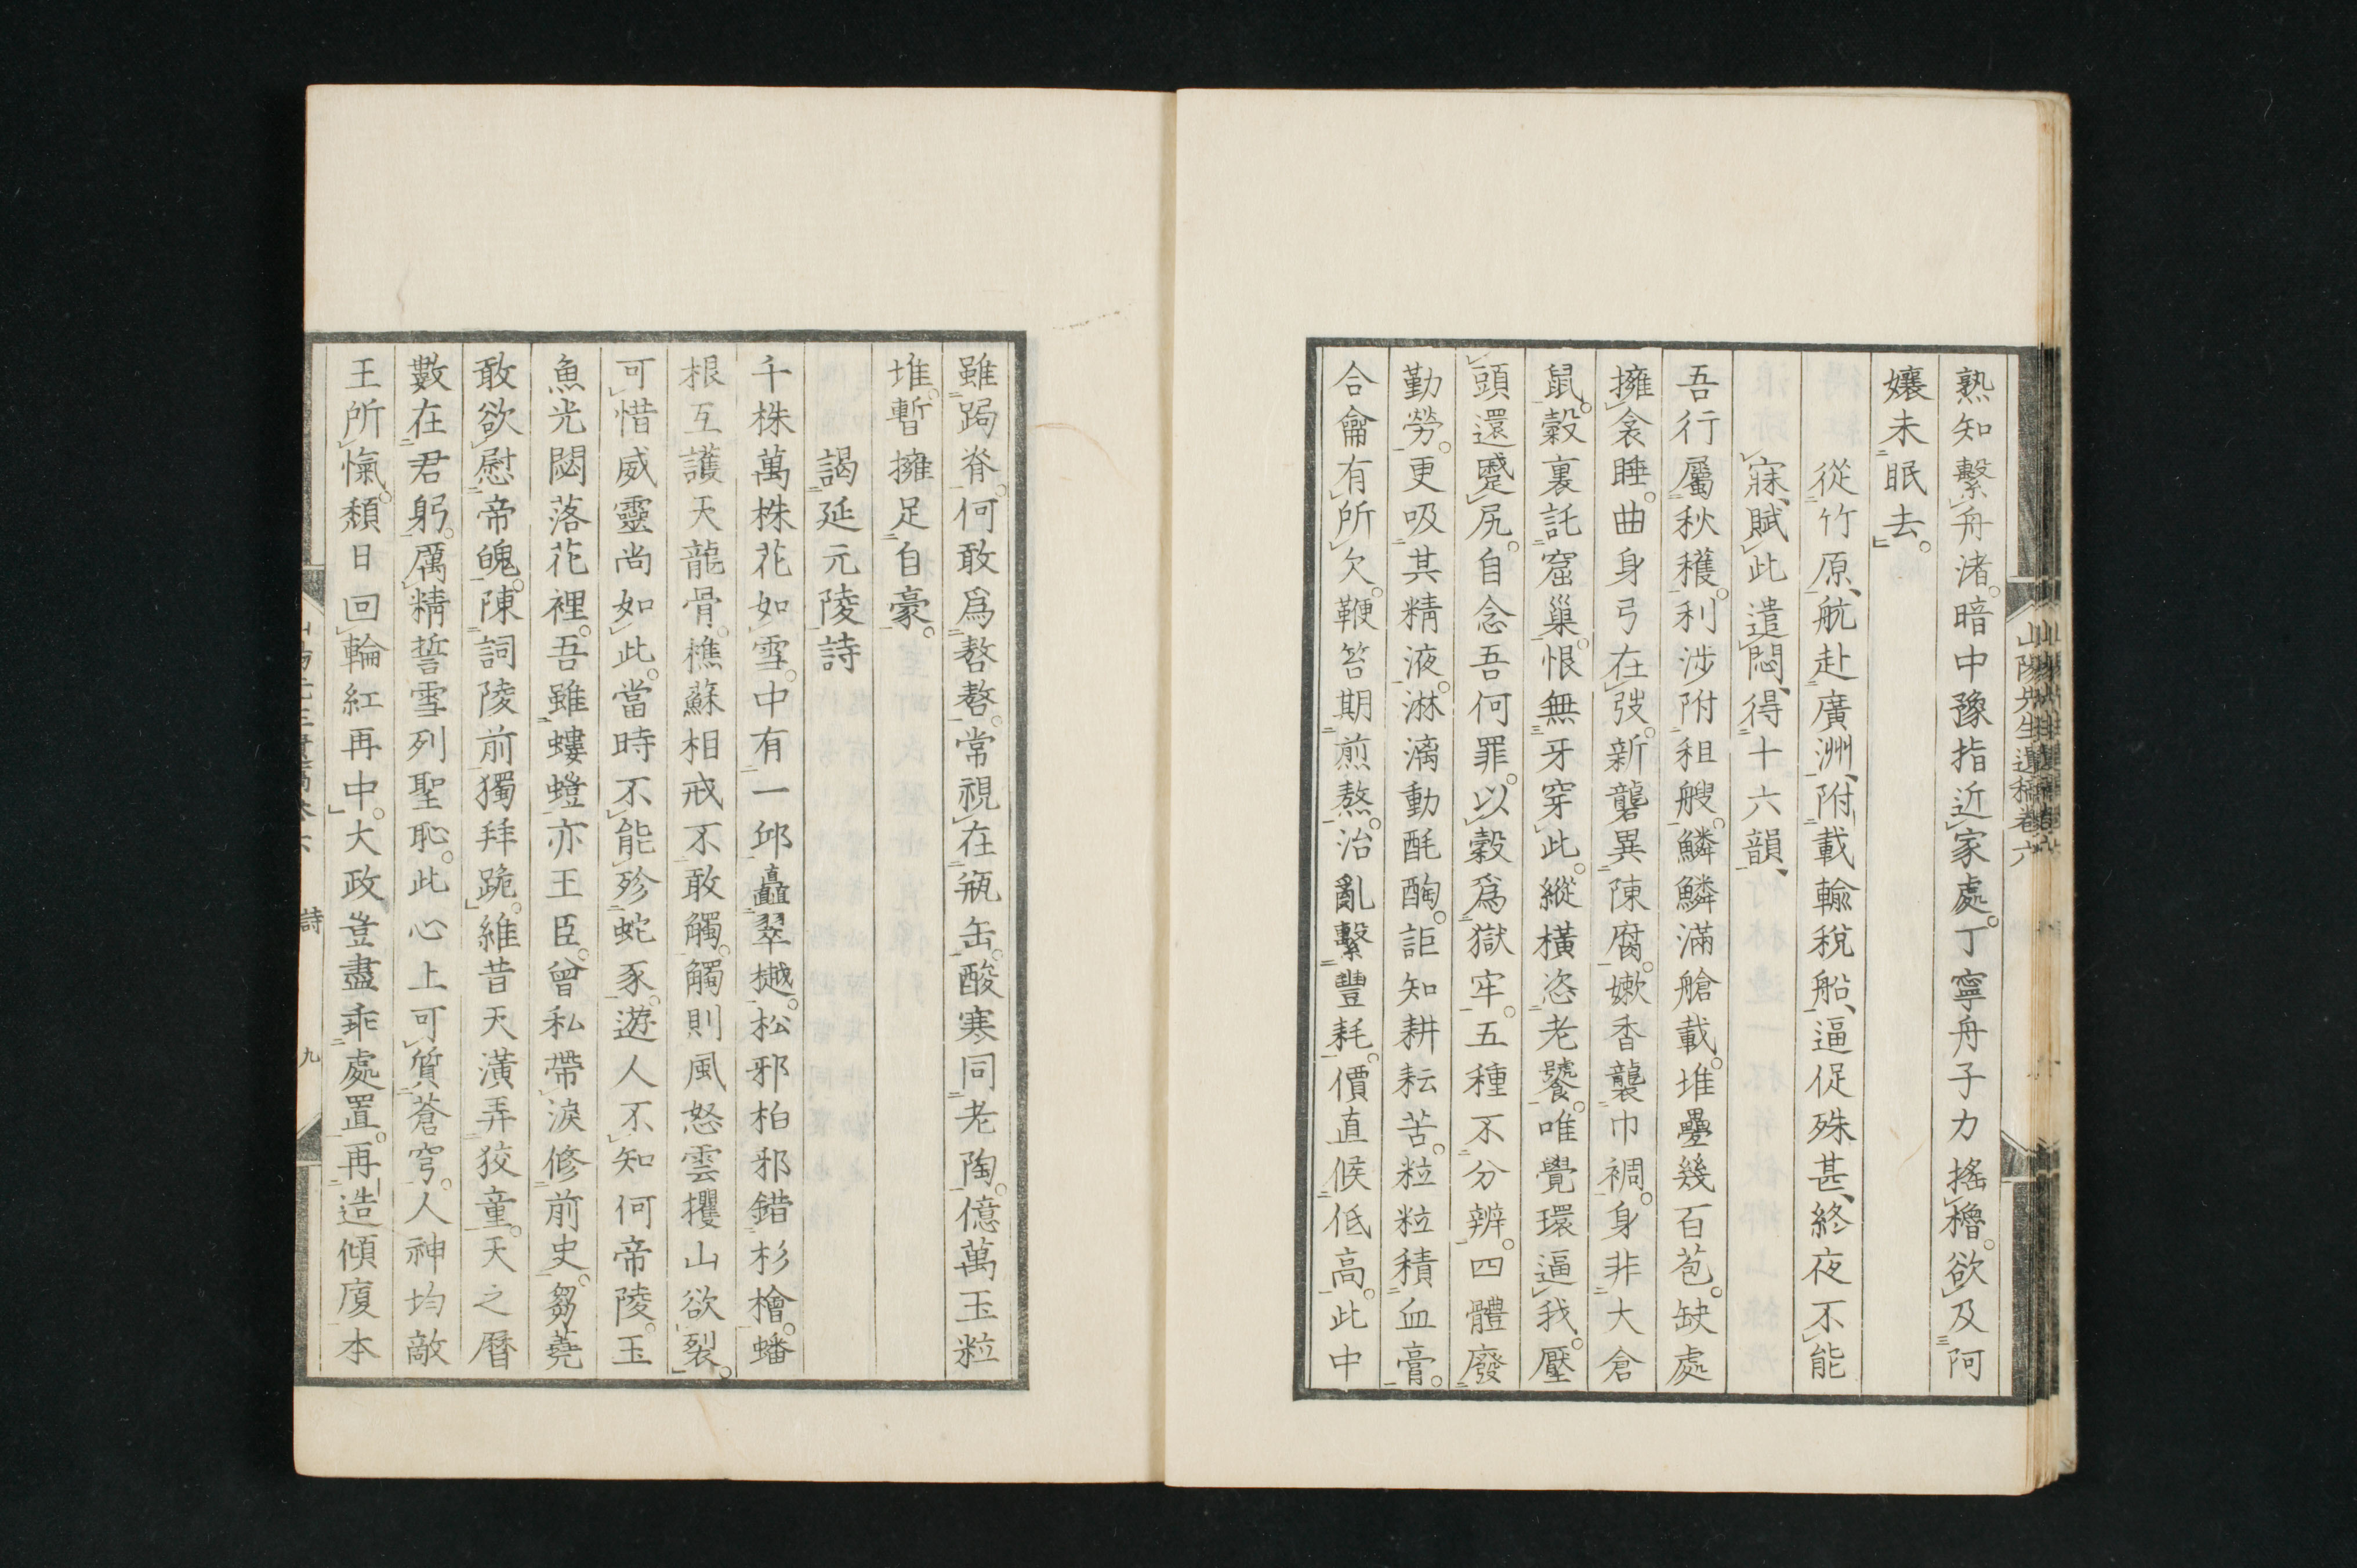 熟知繫舟渚。暗中豫指近家處。丁寧舟子力搖櫓。欲及阿
孃未眠去。
從竹原、航赴廣洲、附載輸稅船、逼促殊甚、終夜不能
寐、賦此遣悶、得十六韻、
吾行屬秋穫。利涉附租艘。鱗鱗滿艙載。堆疊幾百苞。缺處
擁衾睡。曲身弓在弢。新礱異陳腐。嫰香襲巾裯。身非大倉
鼠。穀裏託窟巢。恨無牙穿此。縱橫恣老饕。唯覺環逼我。壓
頭還蹙尻。自念吾何罪。以穀爲獄牢。五種不分辨。四體廢
勤勞。更吸其精液。淋漓動酕醄。詎知耕耘苦。粒粒積血膏。
合龠有所欠。鞭笞期煎熬。治亂繫豐耗。價直候低高。此中
雖跼脊。何敢爲嗸嗸。常視在瓶缶。酸寒同老陶。億萬玉粒
堆。暫擁足自豪。
謁延元陵詩
千株萬株花如雪。中有一邱矗翠樾。松邪柏邪錯杉檜。蟠
根互護天龍骨。樵蘇相戒不敢觸。觸則風怒雲攫山欲裂。
可惜威靈尚如此。當時不能殄蛇豕。遊人不知何帝陵。玉
魚光閟落花裡。吾雖螻螘亦王臣。曾私帶淚修前史。芻蕘
敢欲慰帝魄。陳詞陵前獨拜跪。維昔天潢弄狡童。天之曆
數在君躬。厲精誓雪列聖恥。此心上可質蒼穹。人神均敵
王所愾。頹日回輪紅再中。大政豈盡乖處置。再造傾廈本
山陽先生遺稿卷六
詩
九